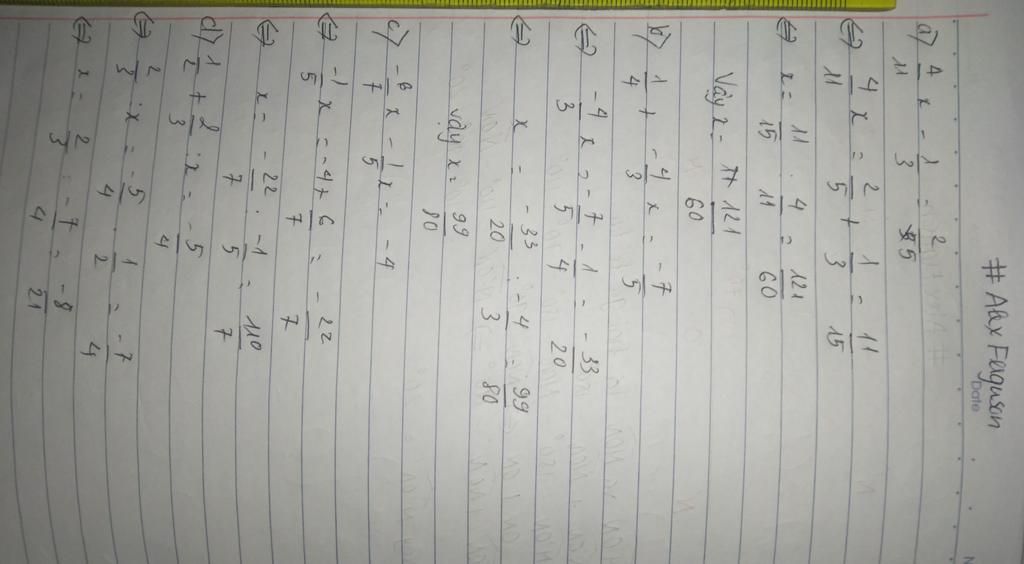 # Alex Ferguson
Date
a) 4/11 x - 1/3 = 2/5
⇔ 4/11 x = 2/5 + 1/3 = 11/15
⇔ x = 11/15 : 4/11 = 121/60
Vậy x = 121/60
b) 1/4 + -4/3 x = -7/5
⇔ -4/3 x = -7/5 - 1/4 = -33/20
⇔ x = -33/20 : -4/3 = 99/80
Vậy x = 99/80
c) -6/7 x - 1/5 x = -4
⇔ -1/5 x = -4 + 6/7 = -22/7
⇔ x = -22/7 : -1/5 = 110/7
d) 1/2 + 2/3 : x = -5/4
⇔ 2/3 : x = -5/4 - 1/2 = -7/4
⇔ x = 2/3 : -7/4 = -8/21